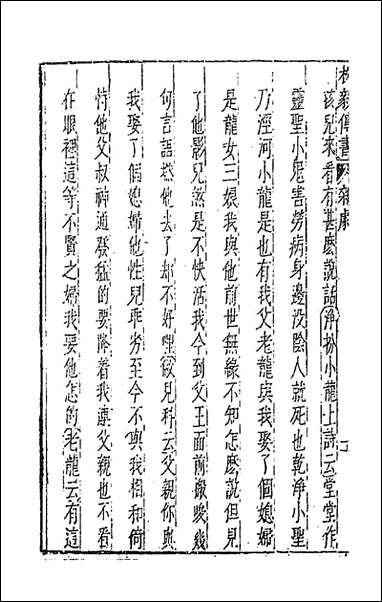 柳毅傳書　雜劇　二
孩兒來看有甚麽說話淨扮小龍上詩云堂堂作
靈聖小鬼害勞病身邊没陰人就死也乾淨小聖
乃涇河小龍是也有我父老龍與我娶了個媳婦
是龍女三娘我與他前世無緣不知怎麽說但見
了他影兒煞是不快活我今到父王面前搬唆幾
句言語撚他去了却不好哩做見科云父親你與
我娶了個媳婦他性兒乖劣至今不與我相和倚
恃他父叔神通發猛的要降着我連父親也不看
在眼裡這等不賢之婦我要他怎的老龍云有這